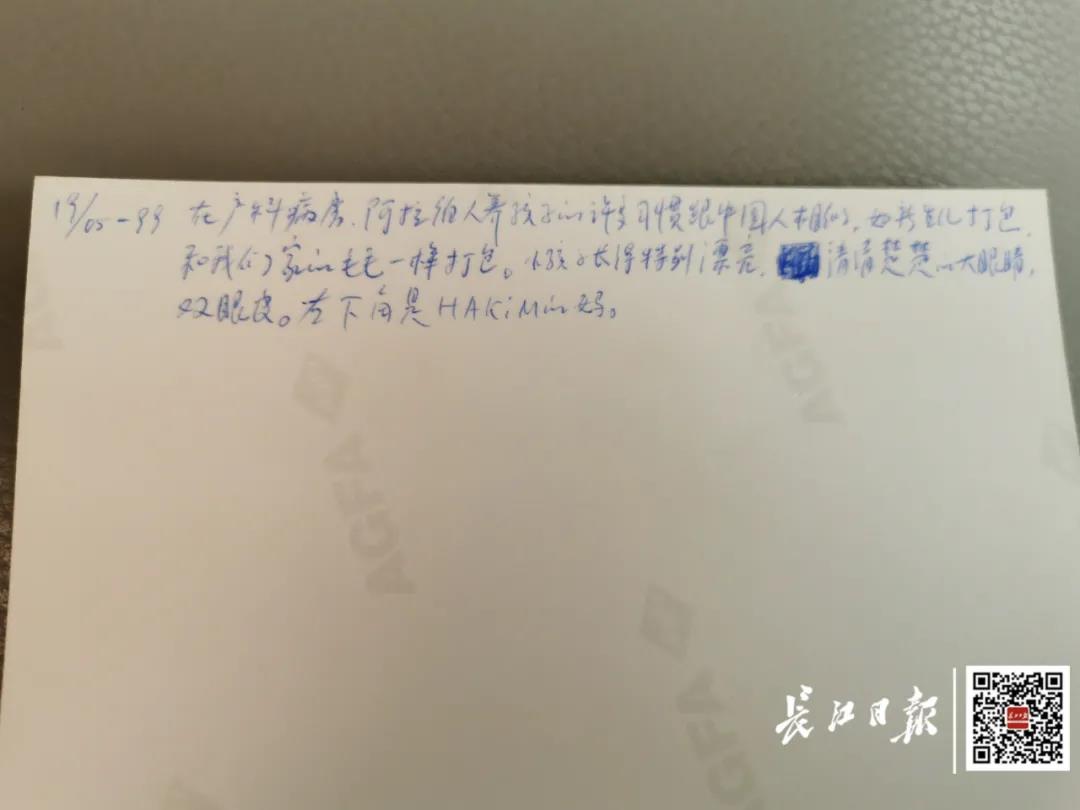 19/05-99 在产科病房、阿拉伯人养孩子的许多习惯跟中国人相似,如新生儿打包,
和我们家的毛毛一样打包。小孩子长得特别漂亮, 清清楚楚的大眼睛,
双眼皮。左下角是HAKiM的妈。
AGFA
AGFA
AGFA
长江日报